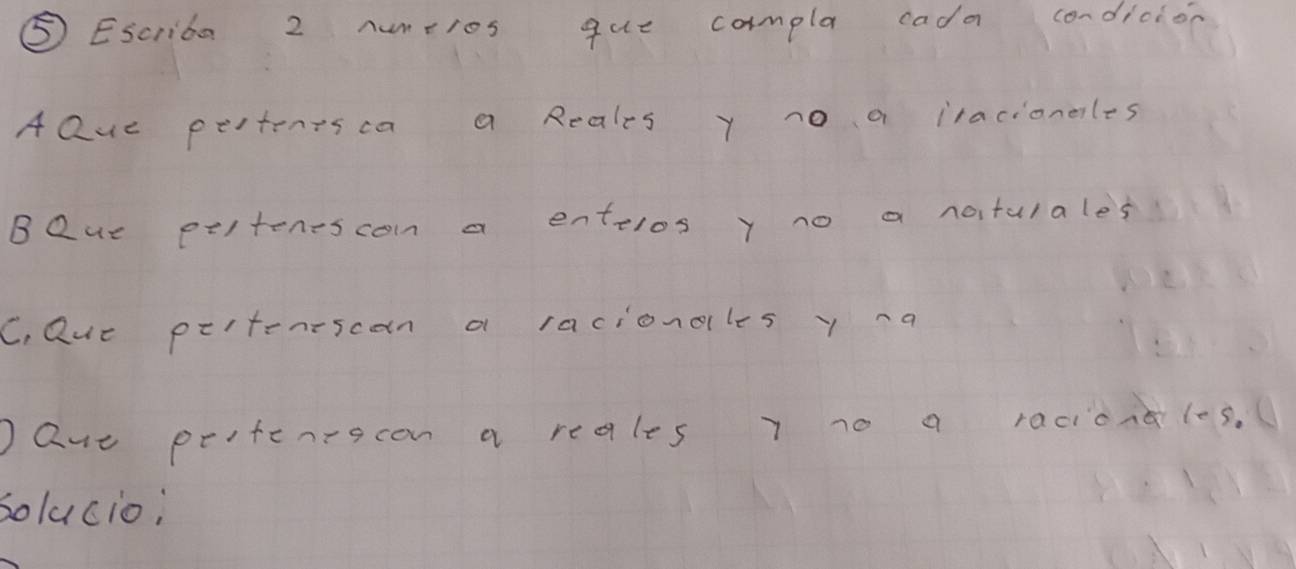 ⑤ Escriba 2 numeros que compla cada condición
A Que pertenesca a Reales y no a iracionales
B Que pertenescan a enteros y no a naturales
C, Que pertenescan a racionales y na
D Que pertenescan a reales y no a racionales.
Solucio: